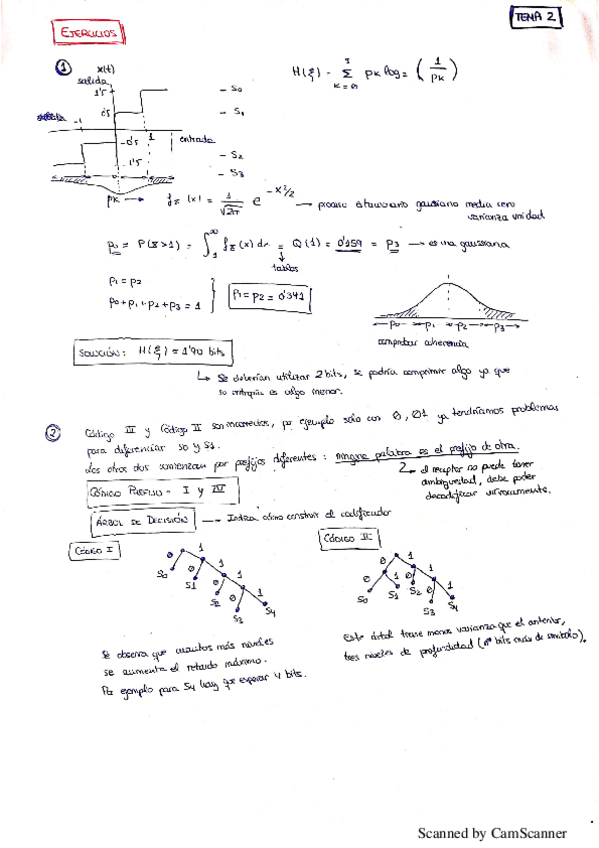 TEMA 2
EJERCICIOS
① x(t)
salida
H(ξ) = Σ pk log2 (1/pk)
k=0
3
1'5
0'5
S0
S1
salida
-1
1
entrada
-0'5
-1'5
S2
S3
pk → fx(x) = 1/√2π e^(-x²/2) → proceso estacionario gaussiano media cero
varianza unidad
p0 = P(x>1) = ∫₁^∞ fx(x) dx = Q(1) = 0'159 = p3 → es una gaussiana
↓
tablas
p1 = p2
p0 + p1 + p2 + p3 = 1
p1 = p2 = 0'341
p0 p1 p2 p3
comprobar coherencia
SOLUCIÓN: H(ξ) = 1'90 bits
↳ Se deberían utilizar 2 bits, se podría comprimir algo ya que
su entropía es algo menor.
② Código III y Código II son incorrectos, por ejemplo solo con 0, 01 ya tendríamos problemas
para diferenciar S0 y S1.
Los otros dos comienzan por prefijos diferentes: ninguna palabra es el prefijo de otra.
↳ el receptor no puede tener
ambigüedad, debe poder
decodificar unívocamente.
CÓDIGO PREFIJO - I y IV
ÁRBOL DE DECISIÓN → Indica cómo construir el codificador
CÓDIGO I
0 1
S0 0 1
S1 0 1
S2 0 1
S3 S4
CÓDIGO IV
0 1
0 1 0 1
S0 S1 S2 0 1
S3 S4
Se observa que cuantos más niveles
se aumenta el retardo máximo.
Por ejemplo para S4 hay que esperar 4 bits.
Este árbol tiene menos varianza que el anterior,
tres niveles de profundidad (nº bits cada símbolo).
Scanned by CamScanner